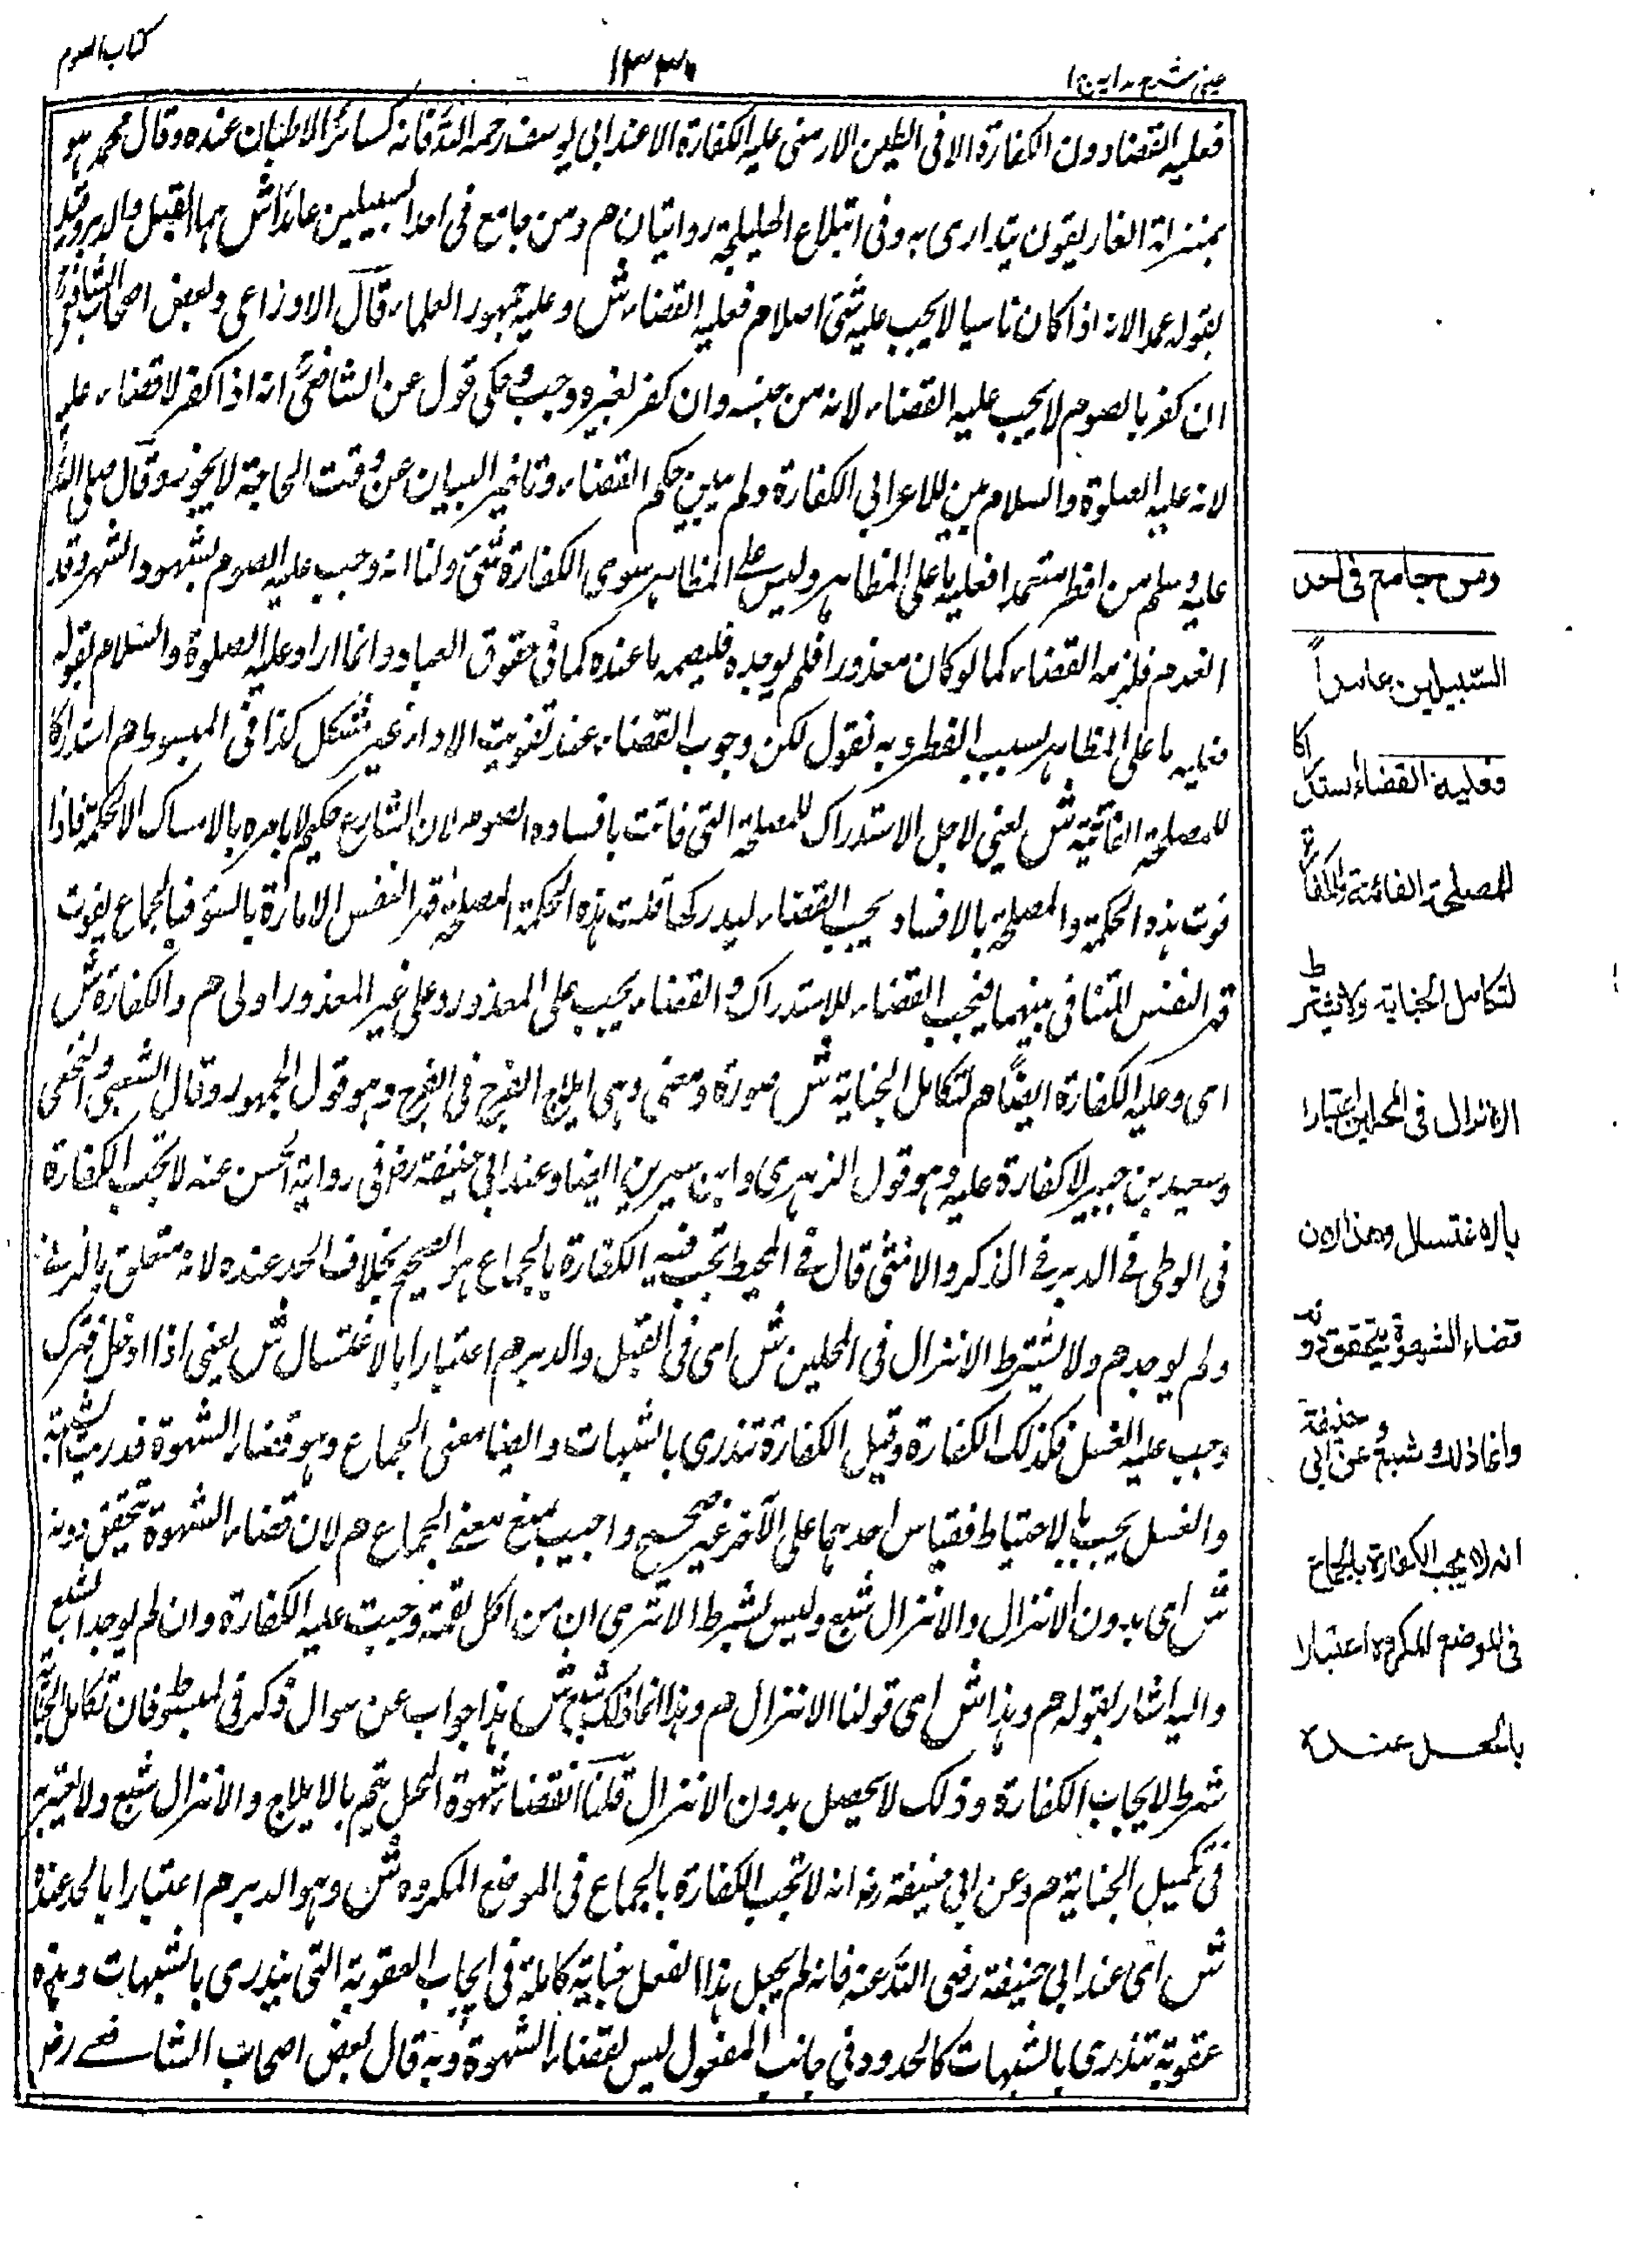 عینی شرح ہدایہ ج ۱
۱۳۳۰
کتاب الصوم
فعلیہ القضاء دون الکفارۃ الا فی الطین الارمنی علیہ الکفارۃ الا عند ابی یوسف رحمہ اللہ فانہ کسائر الاطیان عندہ وقال محمد ہو
بمنزلۃ الغاریقون یتداوی بہ وفی ابتلاع الہلیلجۃ روایتان ھم ومن جامع فی احد السبیلین عامدا ش ہما القبل والدبر وقید
بقولہ عمدا لانہ اذا کان ناسیا لا یجب علیہ شئ اصلا ھم فعلیہ القضاء ش وعلیہ جمہور العلماء وقال الاوزاعی وبعض اصحاب الشافعی
ان کفر بالصوم لا یجب علیہ القضاء لانہ من جنسہ وان کفر بغیرہ وجب وحکی قول عن الشافعیؒ انہ اذا کفر لا قضاء علیہ
لانہ علیہ الصلوۃ والسلام بین للاعرابی الکفارۃ ولم یبین حکم القضاء وتاخیر البیان عن وقت الحاجۃ لا یجوز وقال صلی اللہ
علیہ وسلم من افطر متعمدا فعلیہ ما علی المظاہر ولیس علی المظاہر سوی الکفارۃ شئ ولنا انہ وجب علیہ الصوم بشہود الشہر وقد
انعدم فلزمہ القضاء کما لو کان معذورا فلم یوجدہ فلیصمہ ما عندہ کما فی حقوق العباد وانما اراد علیہ الصلوۃ والسلام بقولہ
فعلیہ ما علی المظاہر بسبب الفطر وبہ نقول لکن وجوب القضاء عند تفویت الاداء غیر مشکل کذا فی المبسوط ھم استدراکا
للمصلحۃ الفائتۃ ش یعنی لاجل الاستدراک للمصلحۃ التی فاتت بافسادہ الصوم لان الشارع حکیم لا یامرہ بالامساک الا لحکمۃ فاذا
فوت ہذہ الحکمۃ والمصلحۃ بالافساد یجب القضاء لیدرکہا قلت ہذہ الحکمۃ المصلحۃ قہر النفس الامارۃ بالسوء فبالجماع یفوت
قہر النفس للتنافی بینہما فیجب القضاء للاستدراک والقضاء یجب علی المعذور وعلی غیر المعذور اولی ھم والکفارۃ ش
ای وعلیہ الکفارۃ ایضا ھم لتکامل الجنایۃ ش صورۃ ومعنی وہی ایلاج الفرج فی الفرج وہو قول الجمہور وقال الشعبی والنخعی
وسعید بن جبیر لا کفارۃ علیہ وہو قول الزہری وابن سیرین ایضا وعند ابی حنیفۃ رض فی روایۃ الحسن عنہ لا تجب الکفارۃ
فی الوطی فی الدبر فی الذکر والانثی قال فی المحیط تجب فیہ الکفارۃ بالجماع ہو الصحیح بخلاف الحد عندہ لانہ متعلق بالزنے
ولم یوجد ھم ولا یشترط الانزال فی المحلین ش ای فی القبل والدبر ھم اعتبارا بالاغتسال ش یعنی اذا ادخل فترک
وجب علیہ الغسل فکذلک الکفارۃ وقیل الکفارۃ تندری بالشبہات وایضا معنی الجماع وہو قضاء الشہوۃ فدریت لشبہۃ
والغسل یجب بالاحتیاط فقیاس احدہما علی الآخر غیر صحیح واجیب بمنع معنی الجماع ھم لان قضاء الشہوۃ تتحقق دونہ
ش ای بدون الانزال والانزال شبع ولیس بشرط الا تری ان من اکل لقمۃ وجبت علیہ الکفارۃ وان لم یوجد الشبع
والیہ اشار بقولہ ھم وہذا ش ای قولنا الانزال ھم وہذا انما ذلک شبع ش ہذا جواب عن سوال ذکر فی المبسوط فان تکامل الجنایۃ
شرط لایجاب الکفارۃ وذلک لا یحصل بدون الانزال قلنا انقضاء شہوۃ المحل یتم بالایلاج والانزال شبع ولا یعتبر
فی تکمیل الجنایۃ ھم وعن ابی حنیفۃ رض انہ لا تجب الکفارۃ بالجماع فی الموضع المکروہ ش وہو الدبر ھم اعتبارا بالحد عندہ
ش ای عند ابی حنیفۃ رضی اللہ عنہ فانہ لم یجعل ہذا الفعل جنایۃ کاملۃ فی ایجاب العقوبۃ التی یندری بالشبہات وہذہ
عقوبۃ تندری بالشبہات کالحدود فی جانب المفعول لیس لقضاء الشہوۃ وبہ قال بعض اصحاب الشافعے رض
ومن جامع فی احد
السبیلین عامداً
فعلیہ القضاء استدراکا
للمصلحۃ الفائتۃ والکفارۃ
لتکامل الجنایۃ ولا یشترط
الانزال فی المحلین اعتبارا
بالاغتسال وھذا لان
قضاء الشھوۃ یتحقق دونہ
وانما ذلک شبع وعن ابی حنیفۃ
انہ لا یجب الکفارۃ بالجماع
فی الموضع المکروہ اعتبارا
بالحد عندہ